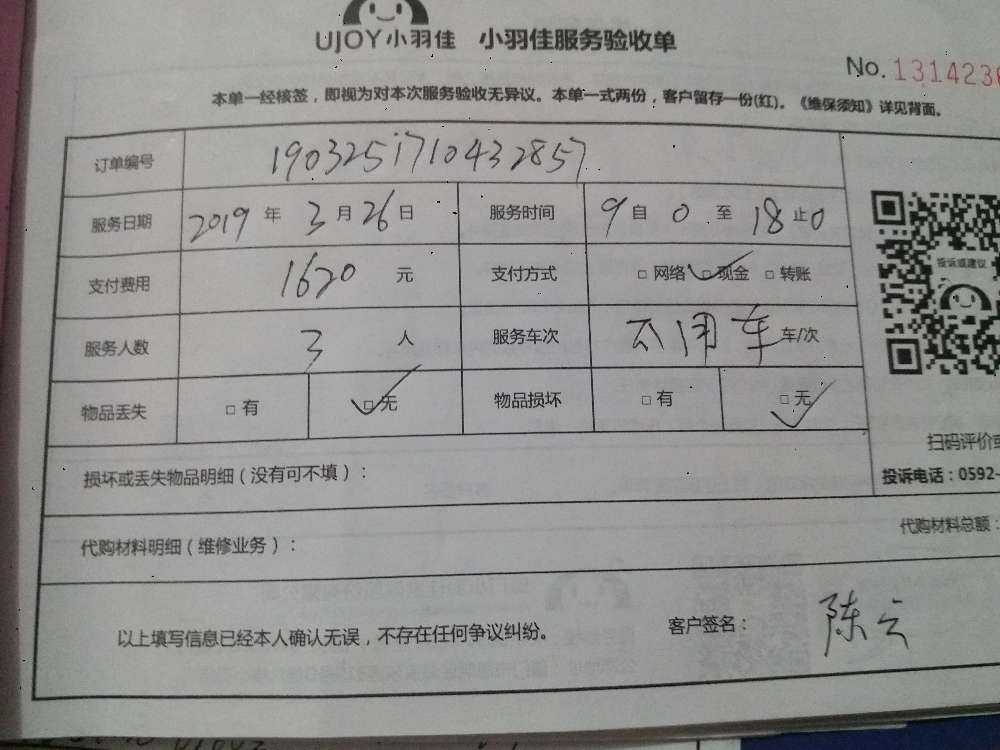 UJOY小羽佳 小羽佳服务验收单
No. 1314236
本单一经核签，即视为对本次服务验收无异议。本单一式两份，客户留存一份(红)。《维保须知》详见背面。
订单编号 1903251710432857
服务日期 2019 年 3 月 26 日 服务时间 9 自 0 至 18 止 0
支付费用 1620 元 支付方式 □ 网络 □ 现金 □ 转账
投诉或建议
服务人数 3 人 服务车次 不用车 车/次
物品丢失 □ 有 □ 无 物品损坏 □ 有 □ 无
扫码评价或
损坏或丢失物品明细（没有可不填）：
投诉电话：0592-
代购材料明细（维修业务）：
代购材料总额：
以上填写信息已经本人确认无误，不存在任何争议纠纷。 客户签名： 陈云